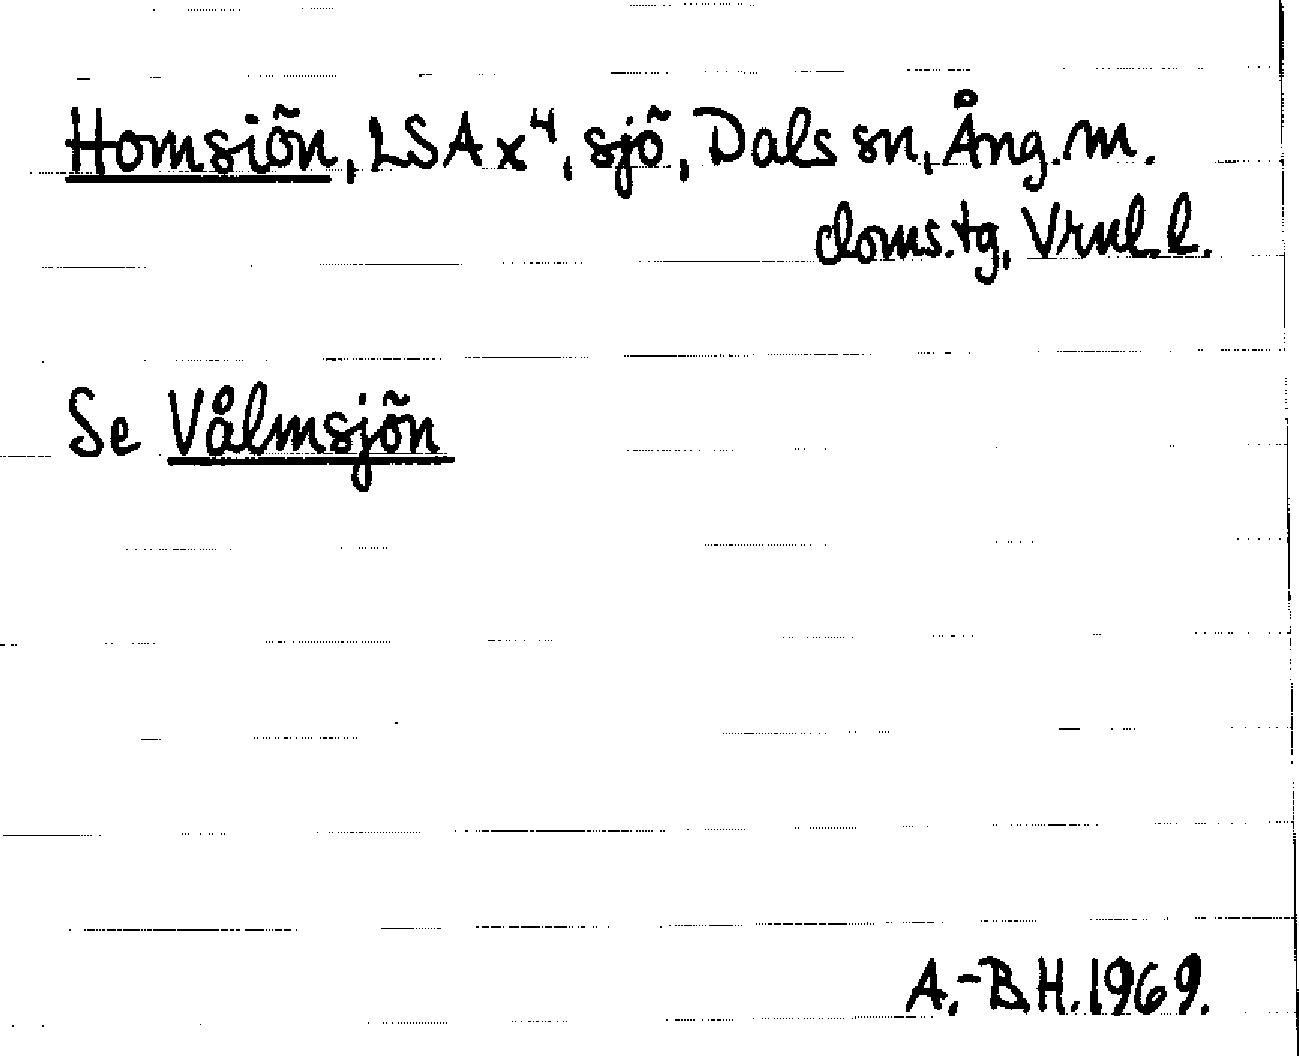 Homsiõn, LSA x⁴, sjõ, Dals sn, Ång. m.
doms.tg, Vrnl. l.
Se Vålmsjõn
A.-B H. 1969.